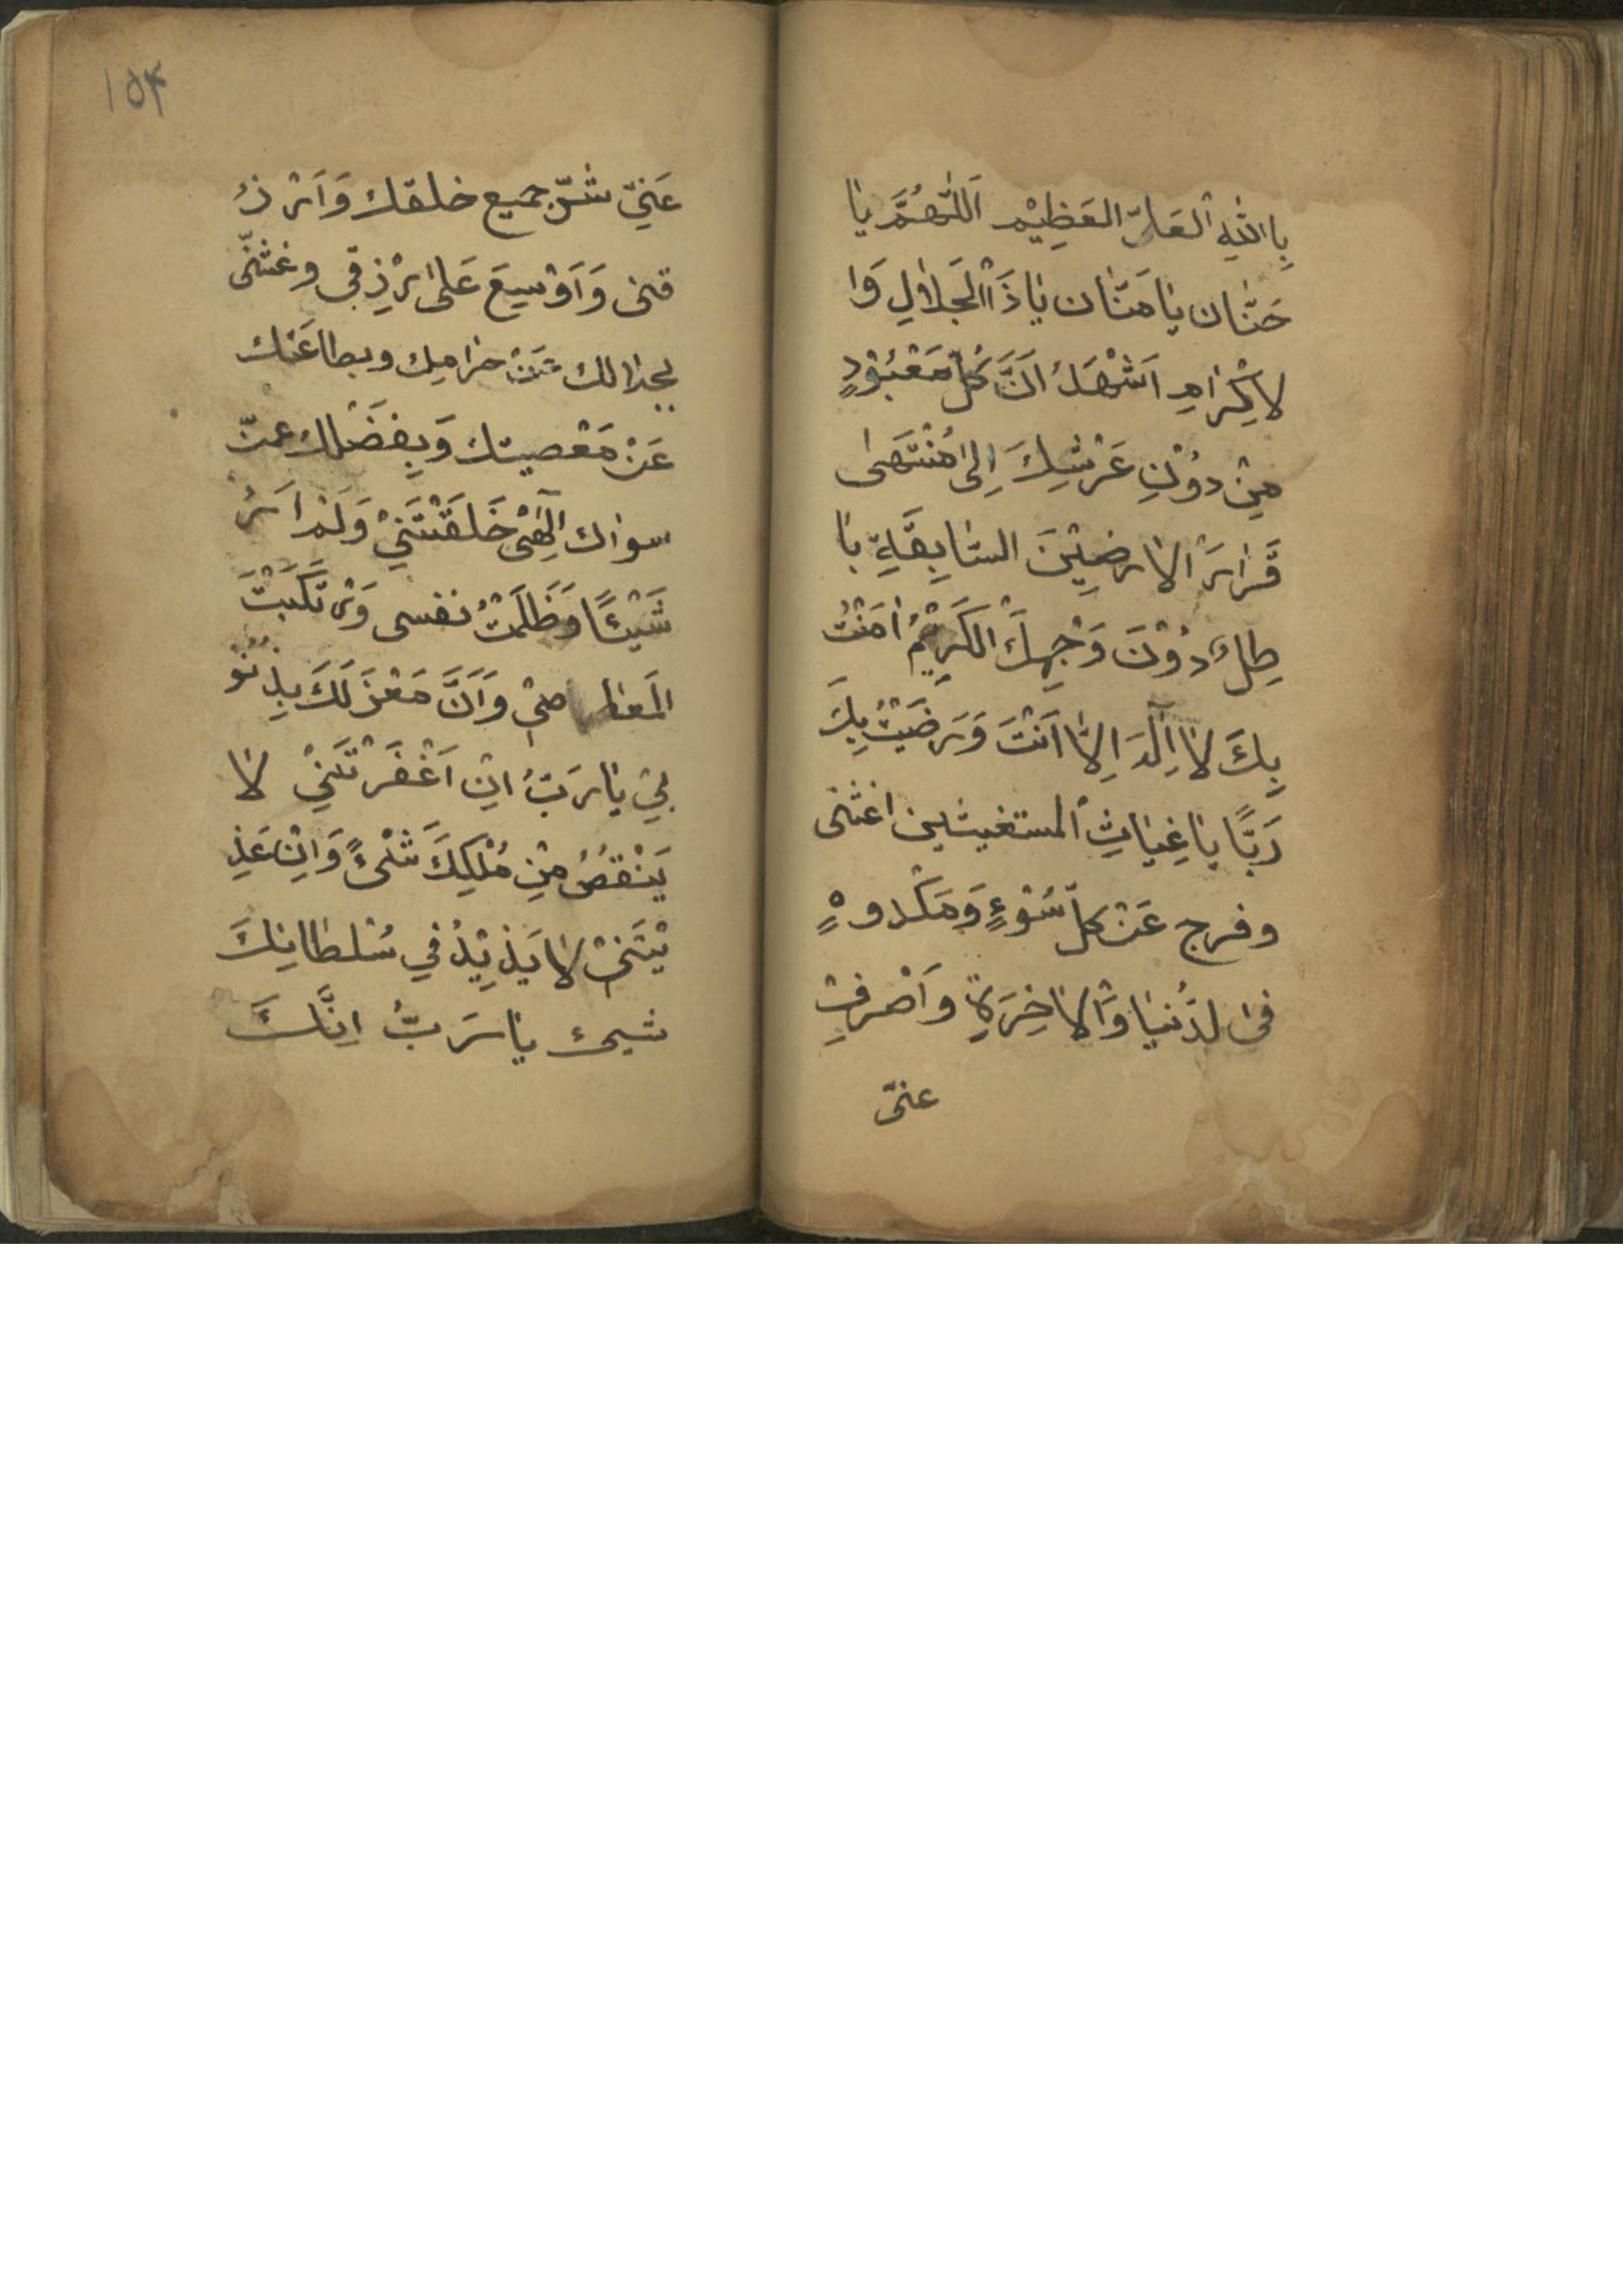 بِاللّٰهِ اَلعَلىِّ العَظِيْم اَللّٰهُمَّ يٰا
حَنّٰان يٰا مَنّٰان يٰا ذَاالْجَلاٰلِ وَا
لاكْرٰامِ اَشْهَدُ اَنَّ كُلَّ مَعْبُوْدٍ
مِنْ دُوْنِ عَرْشِكَ اِلىٰ مُنْتَهىٰ
قَرٰارَ الاٰرضِيْنَ السّٰابِقَةِ بٰا
طِلٌ دُوْنَ وَجْهِكَ الْكَرِيْمُ اٰمَنْتُ
بِكَ لاٰ اِلٰهَ اِلاّٰ اَنْتَ وَرَضَيْتُ بِكَ
رَبًّا يٰا غِيٰاثِ الْمستغيثين اغثنى
وفرج عَنْ كلّ سُوْءٍ وَمَكْروهٍ
فى الدُنيٰا وَالاٰخِرَةِ وَاَصْرِفْ
عنّى
١٥۴
عَنِيّ شرّ جميع خلقك وَاَرْزُ
قنى وَاَوْسِيعَ عَلىٰ رْزِقى وغثنّى
بحلالك عَنْ حرٰامِك وبطاعَتك
عَنْ مَعْصيتك وَبِفَضْلك عمنّ
سوٰاك اِلٰهىْ خَلَقْتَنِيْ وَلَمْ اَرُ
شَيْئًا وَظَلَمْتُ نفسى وَرْتَكَبْتَ
الْمَعٰاصىْ وَاَنَّ مَعْزَلَكَ بِذُنُو
بِيْ يٰا رَبُّ اِنْ اَغْفَرْتَنِيْ لاٰ
يَنْقصُ مْنِ مُلْكِكَ شَىْءً وَاِنْ عَذِ
بْتَنىْ لاٰ يَذِيْدُ فِي سُلطٰانِكَ
شيئ يٰا رَبُّ اِنَّكَ